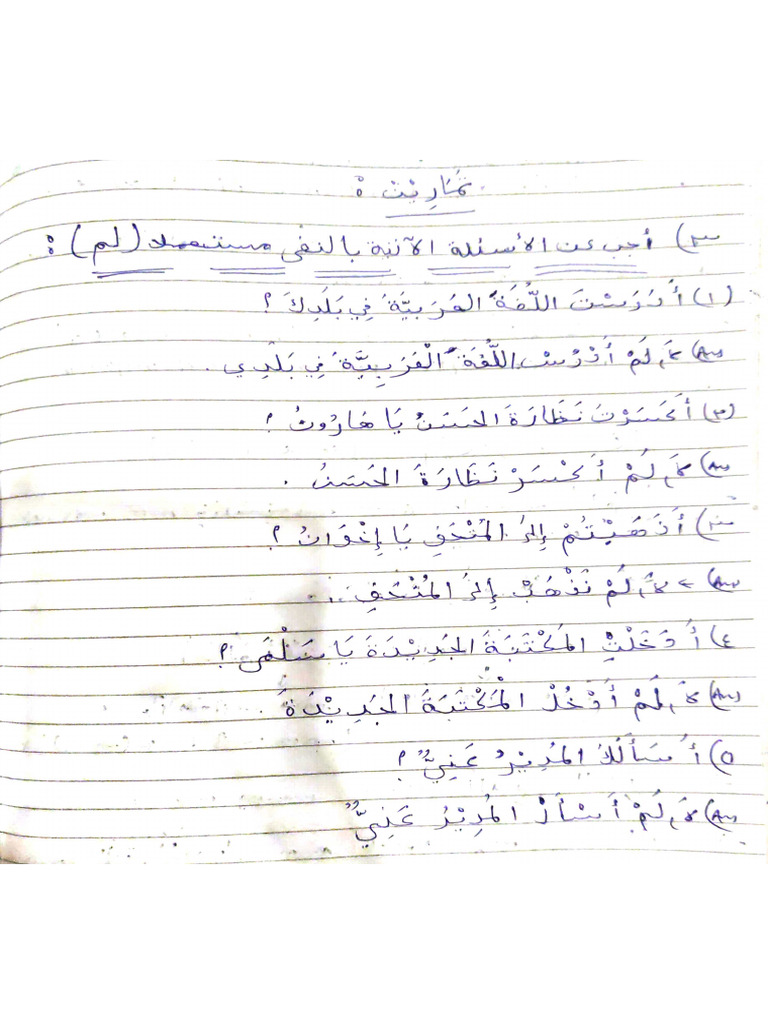 تَمَارِيْن :
٣) أجب عن الأسئلة الآتية بالنفي مستعملا (لم) :
(١) أَدَرَسْتَ اللُّغَةَ العَرَبِيَّةَ فِي بَلَدِكَ ؟
Ans) لَا، لَمْ أَدْرُسْ اللُّغَةَ الْعَرَبِيَّةَ فِي بَلَدِي .
(٢) أَكَسَرْتَ نَظَّارَةَ الحَسَنُ يَا هَارُونُ ؟
Ans) لَا، لَمْ أَكْسَرْ نَظَارَةَ الحَسَنُ .
٣) أَذَهَبْتُمْ إِلَى المُتْحَفِ يَا إِخْوَانُ ؟
Ans) لَا، لَمْ نَذْهَبْ إِلَى المُتْحَفِ ..
٤) أَدَخَلْتِ المَكْتَبَةَ الجَدِيْدَةَ يَا سَلْمَى ؟
Ans) لَا، لَمْ أَدْخُلْ الْمَكْتَبَةَ الجَدِيْدَةَ
٥) أَسَأَلَكَ المُدِيْرُ عَنِّي ؟
Ans) لَا، لَمْ أَسْأَلْ المُدِيْرُ عَنِّي